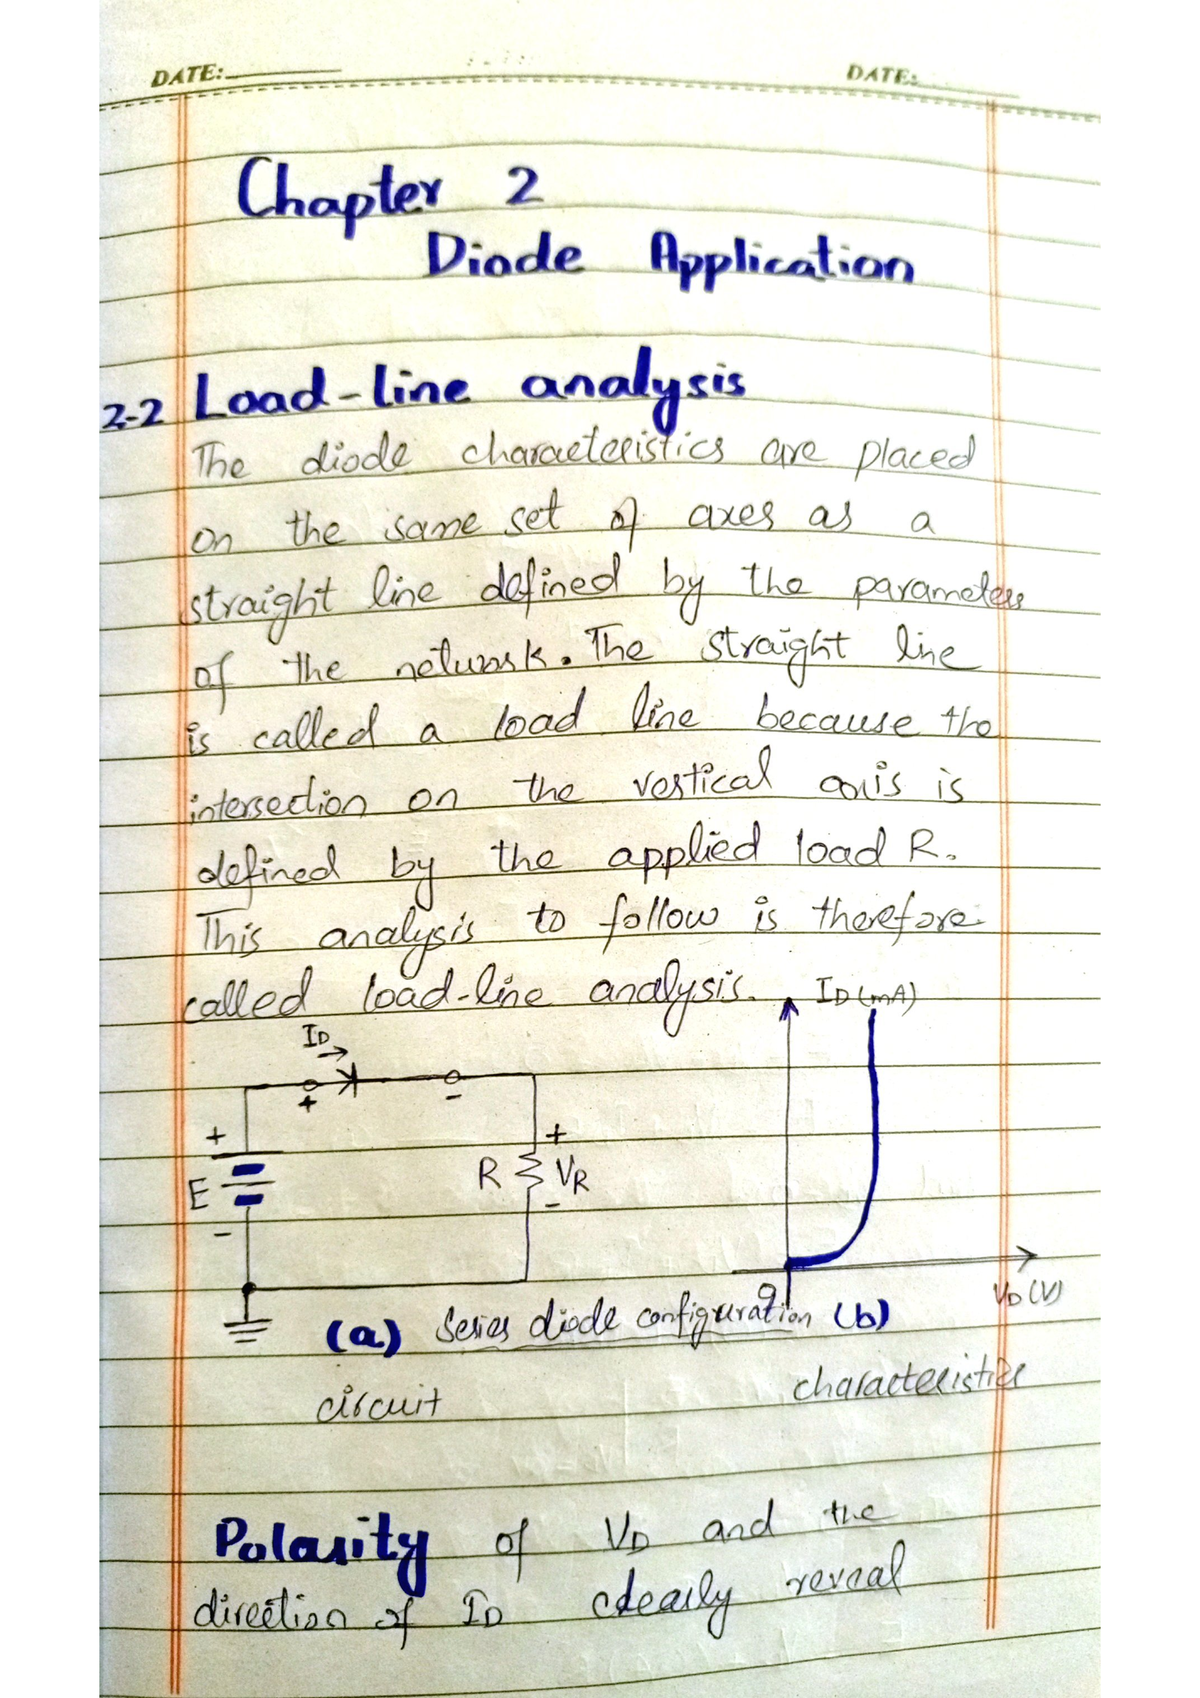 DATE: DATE:
Chapter 2
Diode Application
2-2 Load-line analysis
The diode characteristics are placed
on the same set of axes as a
straight line defined by the parameters
of the network. The straight line
is called a load line because the
intersection on the vertical axis is
defined by the applied load R.
This analysis to follow is therefore
called load-line analysis.
ID (mA)
ID
+ -
+
E
-
R
+
VR
-
0
VD (V)
(a) Series diode configuration (b)
circuit characteristics
Polarity of VD and the
direction of ID clearly reveal